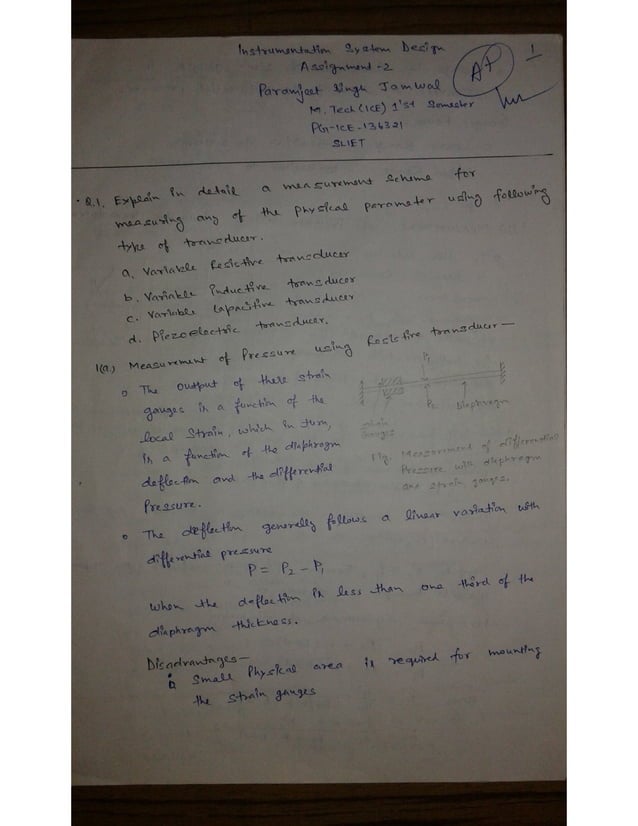 Instrumentation System Design
Assignment-2
Paramjeet Singh Jamwal
M.Tech (ICE) 1'st Semester
PG-ICE-136321
SLIET
A+
1
Q.1. Explain in detail a measurement scheme for
measuring any of the physical parameter using following
type of transducer.
a. Variable Resistive transducer
b. Variable inductive transducer
c. Variable Capacitive transducer
d. Piezoelectric transducer.
1(a.) Measurement of Pressure using Resistive transducer—
o The output of these strain
gauges is a function of the
local strain, which in turn,
is a function of the diaphragm
deflection and the differential
Pressure.
P1
P2
Diaphragm
strain
Gauges
Fig. Measurement of differential
Pressure with diaphragm
and strain gauges.
o The deflection generally follows a linear variation with
differential pressure
P = P2 - P1
when the deflection is less than one third of the
diaphragm thickness.
Disadvantages—
Small Physical area is required for mounting
the strain gauges